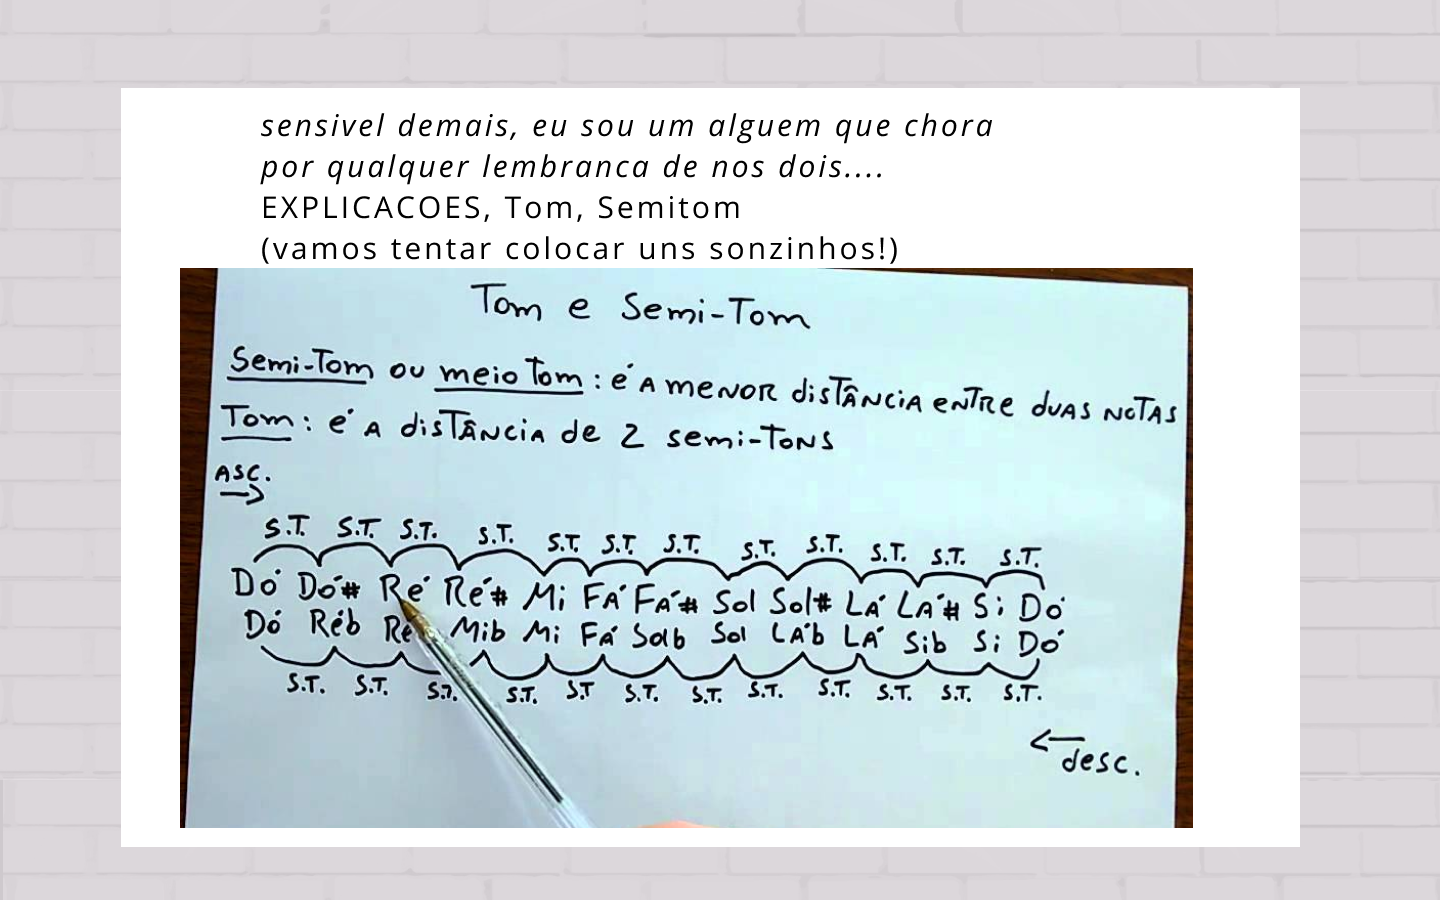 sensivel demais, eu sou um alguem que chora
por qualquer lembranca de nos dois....
EXPLICACOES, Tom, Semitom
(vamos tentar colocar uns sonzinhos!)
Tom e Semi-Tom
Semi-Tom ou meio Tom: é a menor distância entre duas notas
Tom: é a distância de 2 semi-tons
ASC.
S.T. S.T. S.T. S.T. S.T. S.T. S.T. S.T. S.T. S.T. S.T. S.T.
Dó Dó# Ré Ré# Mi Fá Fá# Sol Sol# Lá Lá# Si Dó
Dó Réb Ré Mib Mi Fá Solb Sol Láb Lá Sib Si Dó
S.T. S.T. S.T. S.T. S.T S.T. S.T. S.T. S.T. S.T. S.T. S.T.
desc.